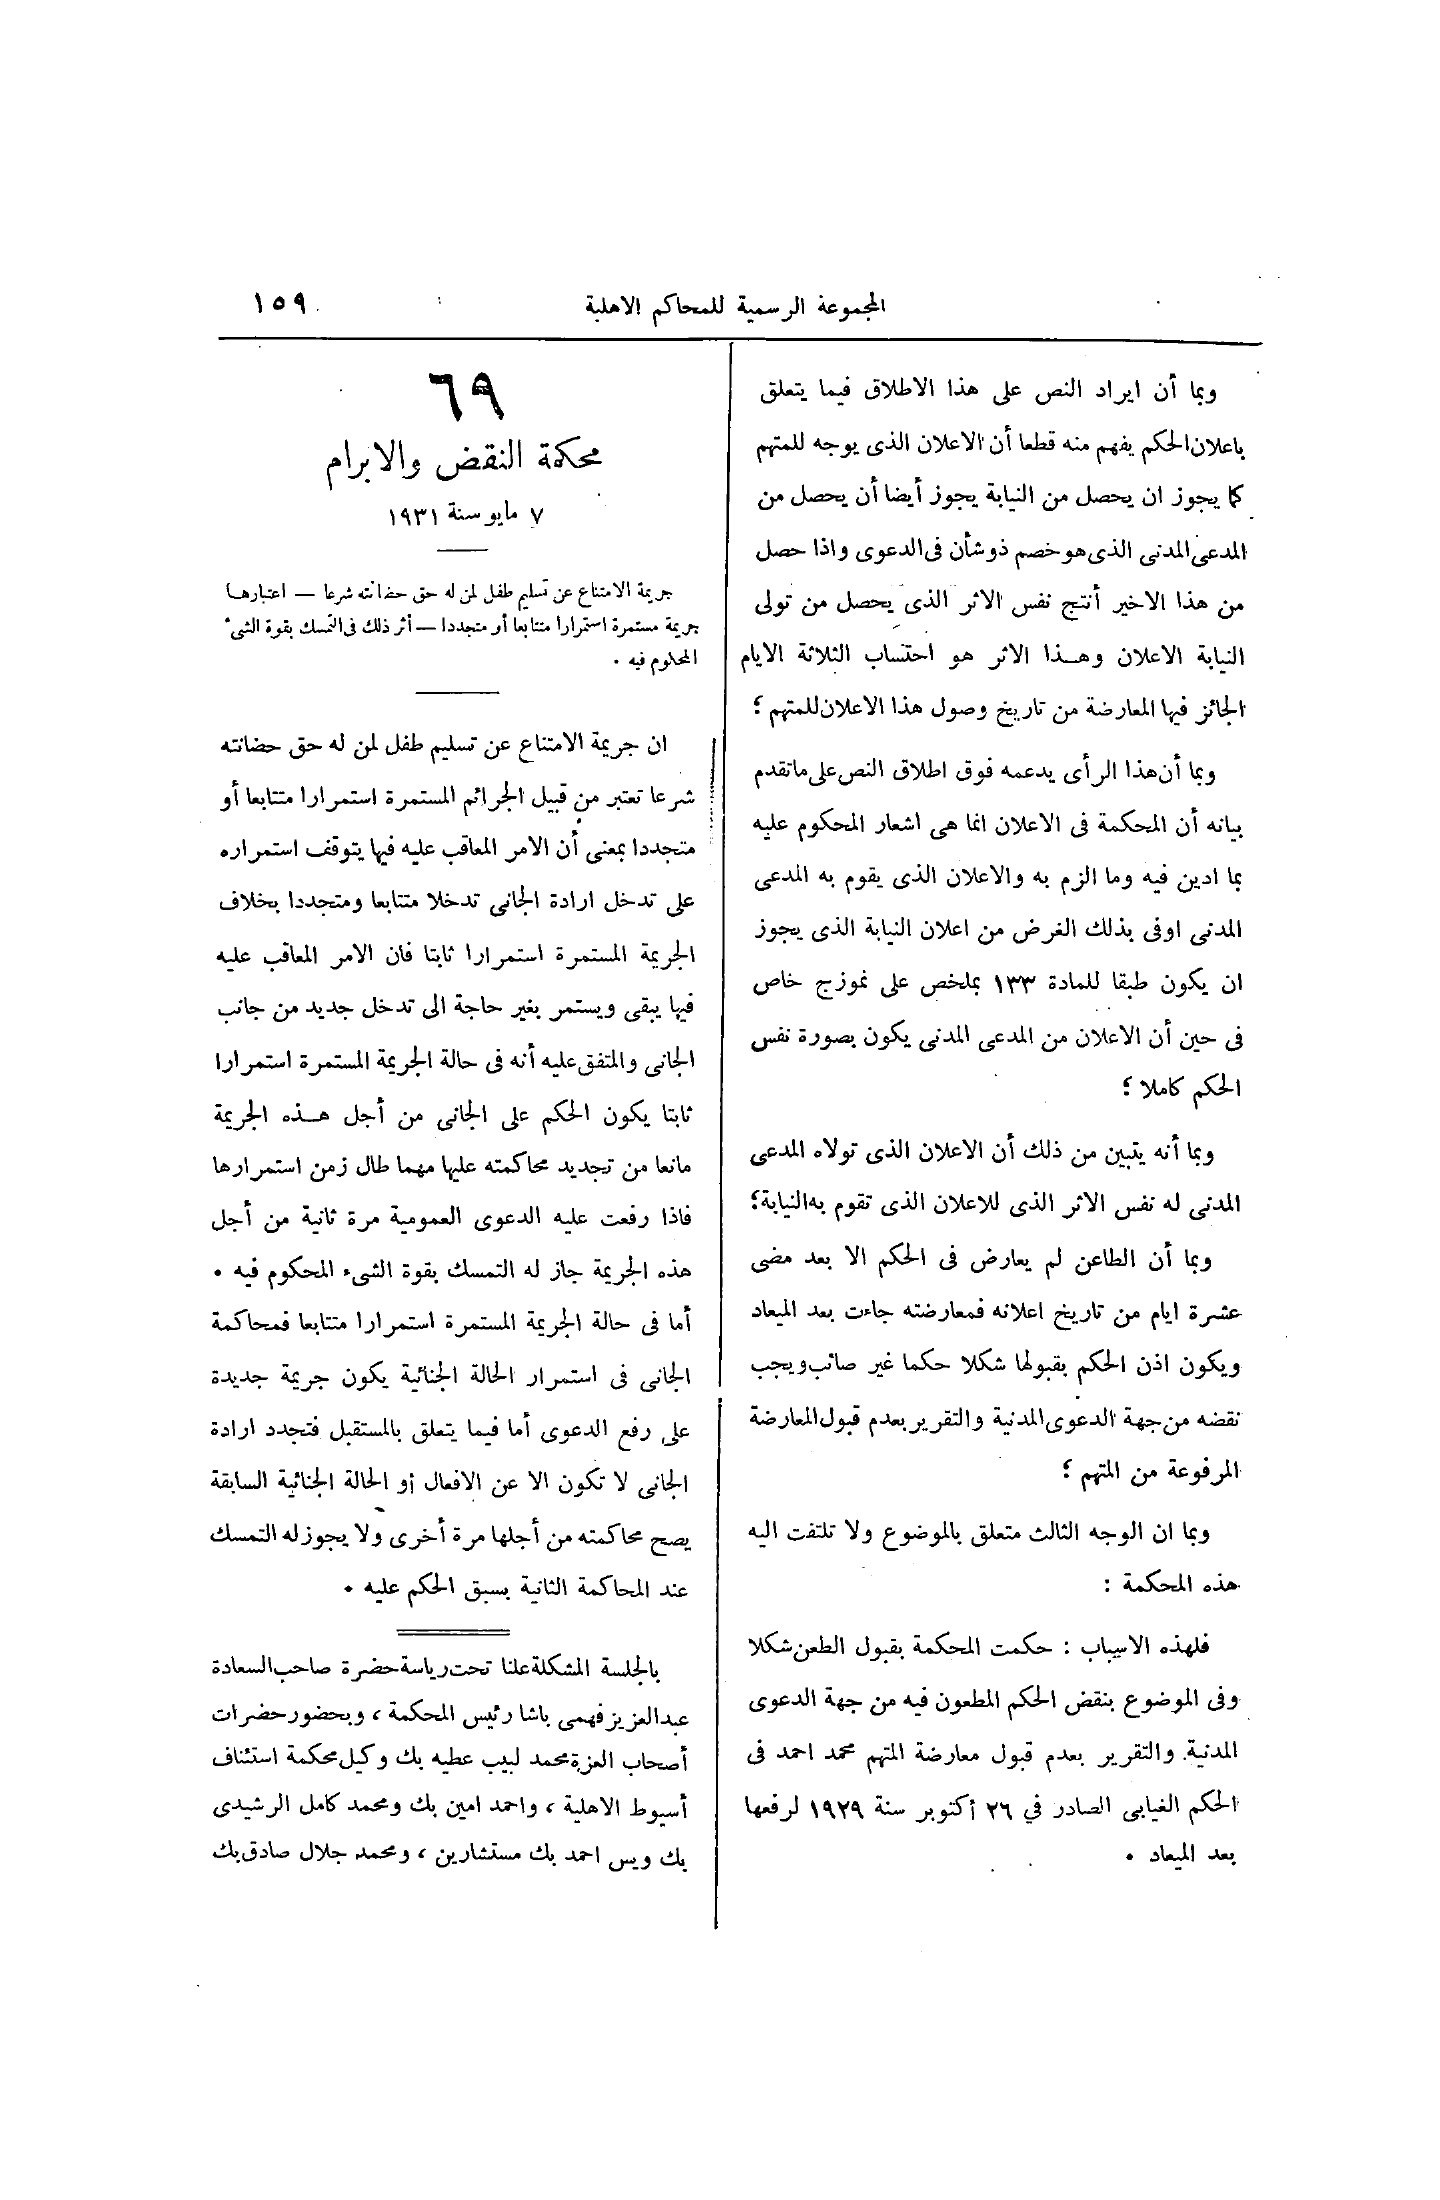 المجموعة الرسمية للمحاكم الاهلية
١٥٩
وبما أن ايراد النص على هذا الاطلاق فيما يتعلق
باعلان الحكم يفهم منه قطعا أن الاعلان الذى يوجه للمتهم
كما يجوز ان يحصل من النيابة يجوز أيضا أن يحصل من
المدعى المدنى الذى هو خصم ذو شأن فى الدعوى واذا حصل
من هذا الاخير أنتج نفس الاثر الذى يحصل من تولى
النيابة الاعلان وهذا الاثر هو احتساب الثلاثة الايام
الجائز فيها المعارضة من تاريخ وصول هذا الاعلان للمتهم ؛
وبما أن هذا الرأى يدعمه فوق اطلاق النص على ماتقدم
بيانه أن المحكمة فى الاعلان انما هى اشعار المحكوم عليه
بما ادين فيه وما الزم به والاعلان الذى يقوم به المدعى
المدنى اوفى بذلك الغرض من اعلان النيابة الذى يجوز
ان يكون طبقا للمادة ١٣٣ بملخص على نموزج خاص
فى حين أن الاعلان من المدعى المدنى يكون بصورة نفس
الحكم كاملا ؛
وبما أنه يتبين من ذلك أن الاعلان الذى تولاه المدعى
المدنى له نفس الاثر الذى للاعلان الذى تقوم به النيابة؛
وبما أن الطاعن لم يعارض فى الحكم الا بعد مضى
عشرة ايام من تاريخ اعلانه فمعارضته جاءت بعد الميعاد
ويكون اذن الحكم بقبولها شكلا حكما غير صائب ويجب
نقضه من جهة الدعوى المدنية والتقرير بعدم قبول المعارضة
المرفوعة من المتهم ؛
وبما ان الوجه الثالث متعلق بالموضوع ولا تلتفت اليه
هذه المحكمة :
فلهذه الاسباب : حكمت المحكمة بقبول الطعن شكلا
وفى الموضوع بنقض الحكم المطعون فيه من جهة الدعوى
المدنية والتقرير بعدم قبول معارضة المتهم محمد احمد فى
الحكم الغيابى الصادر في ٢٦ أكتوبر سنة ١٩٢٩ لرفعها
بعد الميعاد .
٦٩
محكمة النقض والابرام
٧ مايو سنة ١٩٣١
جريمة الامتناع عن تسليم طفل لمن له حق حضانته شرعا — اعتبارها
جريمة مستمرة استمرارا متتابعا أو متجددا — أثر ذلك فى التمسك بقوة الشىء
المحكوم فيه .
ان جريمة الامتناع عن تسليم طفل لمن له حق حضانته
شرعا تعتبر من قبيل الجرائم المستمرة استمرارا متتابعا أو
متجددا بمعنى أن الامر المعاقب عليه فيها يتوقف استمراره
على تدخل ارادة الجانى تدخلا متتابعا ومتجددا بخلاف
الجريمة المستمرة استمرارا ثابتا فان الامر المعاقب عليه
فيها يبقى ويستمر بغير حاجة الى تدخل جديد من جانب
الجانى والمتفق عليه أنه فى حالة الجريمة المستمرة استمرارا
ثابتا يكون الحكم على الجانى من أجل هذه الجريمة
مانعا من تجديد محاكمته عليها مهما طال زمن استمرارها
فاذا رفعت عليه الدعوى العمومية مرة ثانية من أجل
هذه الجريمة جاز له التمسك بقوة الشىء المحكوم فيه .
أما فى حالة الجريمة المستمرة استمرارا متتابعا فمحاكمة
الجانى فى استمرار الحالة الجنائية يكون جريمة جديدة
على رفع الدعوى أما فيما يتعلق بالمستقبل فتجدد ارادة
الجانى لا تكون الا عن الافعال أو الحالة الجنائية السابقة
يصح محاكمته من أجلها مرة أخرى ولا يجوز له التمسك
عند المحاكمة الثانية بسبق الحكم عليه .
بالجلسة المشكلة علنا تحت رياسة حضرة صاحب السعادة
عبد العزيز فهمى باشا رئيس المحكمة ، وبحضور حضرات
أصحاب العزة محمد لبيب عطيه بك وكيل محكمة استئناف
أسيوط الاهلية ، واحمد امين بك ومحمد كامل الرشيدى
بك ويس احمد بك مستشارين ، ومحمد جلال صادق بك